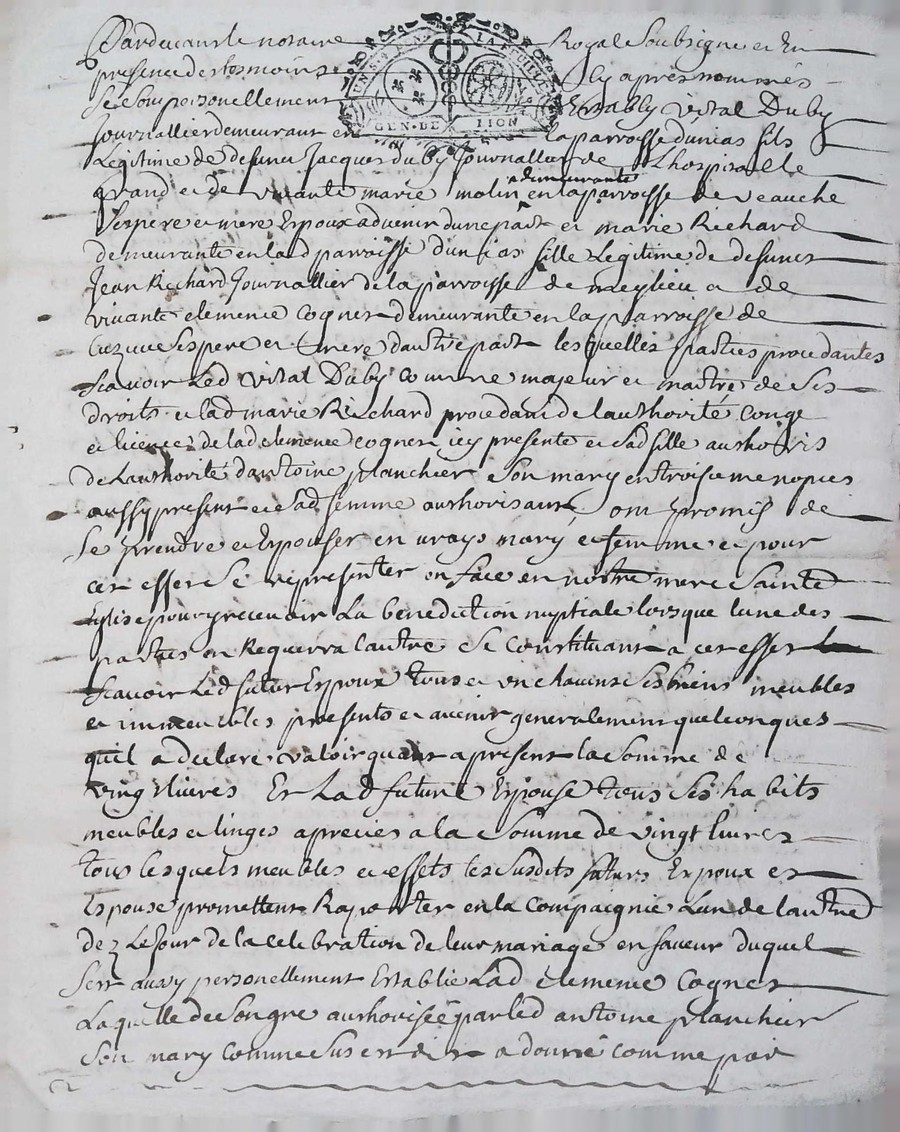 Pardevant le notaire Royal Soubsigné et En
presence des tesmoins Cy apres nommés
Se Sont personellement Establÿ vital Duby
Journallier demeurant en la parroisse dunias fils
Legitime de defunct Jacques duby Journallier de Lhospital le
grand et de vivante marie molin demeurante en la parroisse de veauche
Ses pere et mere Expoux advenir dune part et marie Richard
demeurante en lad parroisse dunias fille Legitime de defunct
Jean Richard Journallier de la parroisse de meylieu et de
vivante clemence Cognet demeurante en la parroisse de
Cuzieu Ses pere et mere dautre part lesquelles parties procedantes
Scavoir Led vital Duby Comme majeur et maitre de Ses
droits et lad marie Richard procedant de lauthorité Congé
et licence de lad clemence Cognet icy presente et Sad fille authoris
de Lauthorité dantoine planchier Son mary en troisieme nopces
aussy present et Sad femme authorisant ont promis de
Se prendre et Expouser en vrays mary et femme et pour
cet effet Se representer en face en nostre mere Sainte
Eglise pour y recevoir La benediction nuptiale lorsque lune des
parties en Requerra lautre Se Constituant a cet effet
Scavoir Led futur Expoux tous et un chacuns Ses biens meubles
et immeubles presents et avenir generalement quelconques
quil a declaré valoir quant a present la Somme de
vingt livres Et Lad future Expouse tous Ses habits
meubles et linges apreciés a la Somme de vingt livres
tous lesquels meubles et effets les Susdits futurs Expoux et
Espouse promettent Raporter en la Compaignie Lun de lautre
dez Le Jour de la celebration de leur mariage en faveur duquel
Sest aussy personellement Establie Lad clemence Cognet
Laquelle de Son gré authorisée par led antoine planchier
Son mary Comme Sus est dit a donné comme par